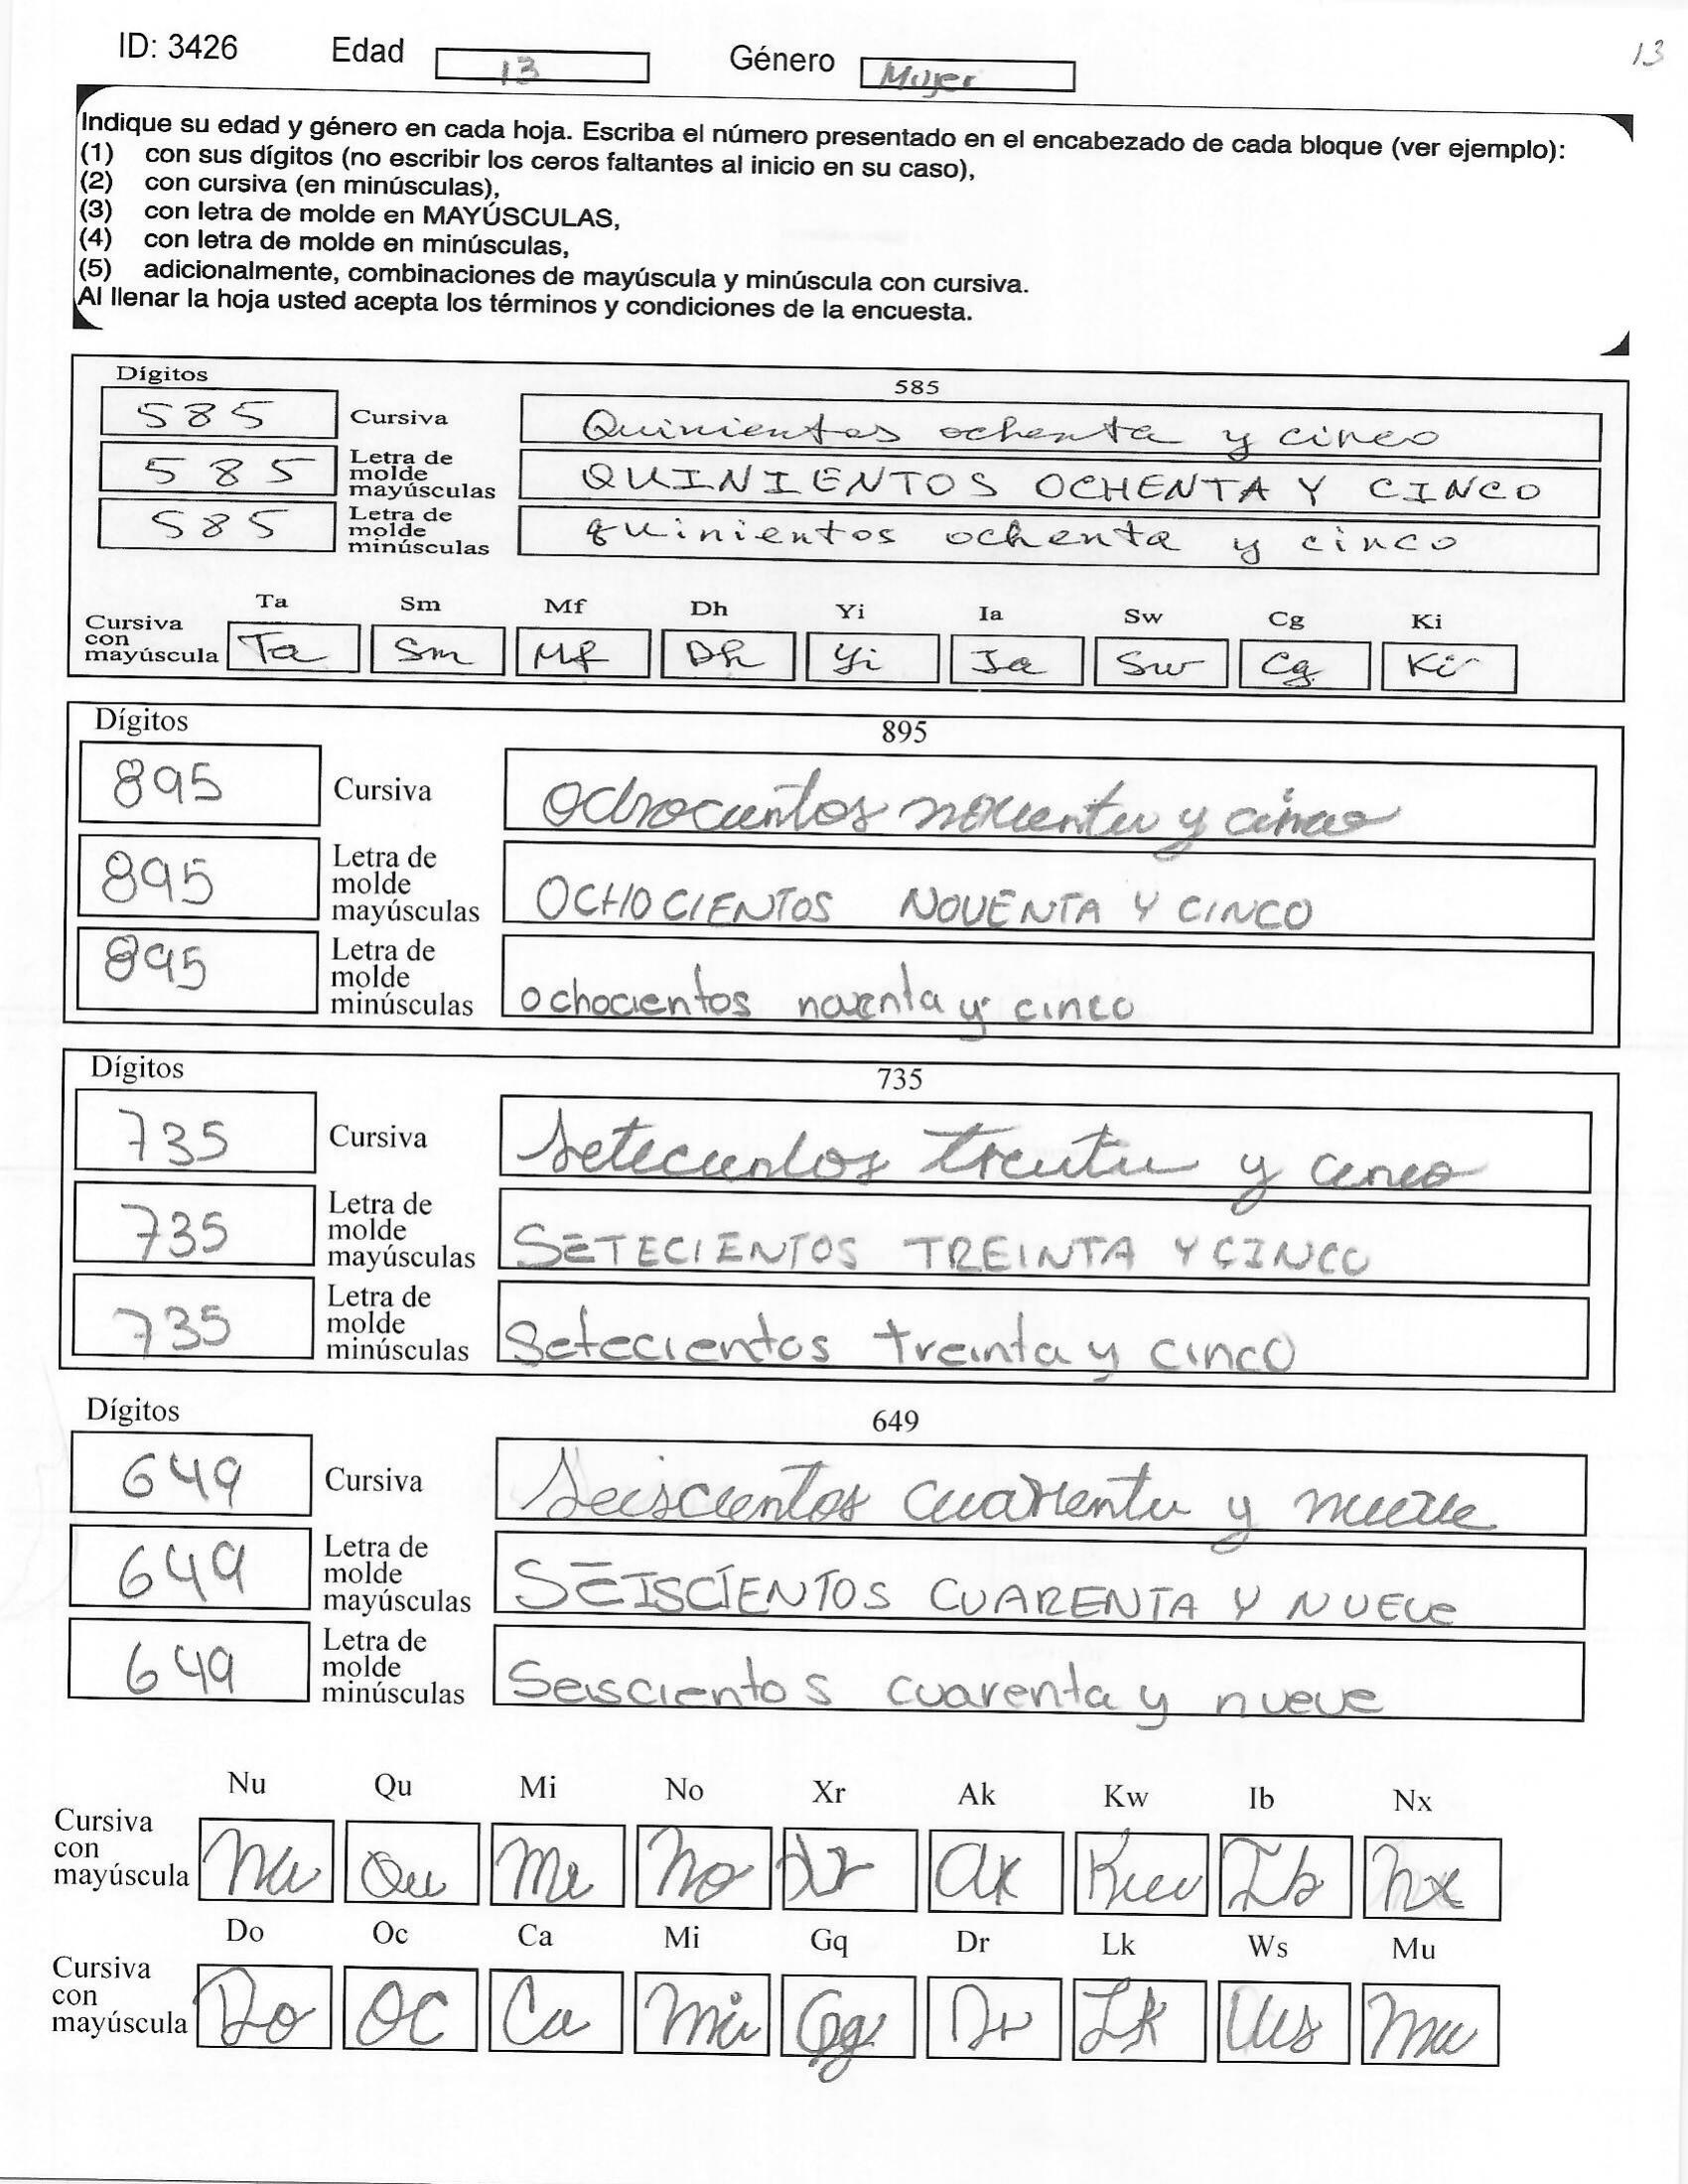 ID: 3426 Edad 13 Género Mujer 13
Indique su edad y género en cada hoja. Escriba el número presentado en el encabezado de cada bloque (ver ejemplo):
(1) con sus dígitos (no escribir los ceros faltantes al inicio en su caso),
(2) con cursiva (en minúsculas),
(3) con letra de molde en MAYÚSCULAS,
(4) con letra de molde en minúsculas,
(5) adicionalmente, combinaciones de mayúscula y minúscula con cursiva.
Al llenar la hoja usted acepta los términos y condiciones de la encuesta.
Dígitos 585
585 Cursiva Quinientos ochenta y cinco
585 Letra de molde mayúsculas QUINIENTOS OCHENTA Y CINCO
585 Letra de molde minúsculas quinientos ochenta y cinco
Ta Sm Mf Dh Yi Ia Sw Cg Ki
Cursiva con mayúscula Ta Sm Mf Dh Yi Ia Sw Cg Ki
Dígitos 895
895 Cursiva ochocientos noventa y cinco
895 Letra de molde mayúsculas OCHOCIENTOS NOVENTA Y CINCO
895 Letra de molde minúsculas ochocientos noventa y cinco
Dígitos 735
735 Cursiva Setecientos treinta y cinco
735 Letra de molde mayúsculas SETECIENTOS TREINTA Y CINCO
735 Letra de molde minúsculas Setecientos treinta y cinco
Dígitos 649
649 Cursiva Seiscientos cuarenta y nueve
649 Letra de molde mayúsculas SEISCIENTOS CUARENTA Y NUEVe
649 Letra de molde minúsculas Seiscientos cuarenta y nueve
Nu Qu Mi No Xr Ak Kw Ib Nx
Cursiva con mayúscula Nu Qu Mi No Xr Ak Kw Ib Nx
Do Oc Ca Mi Gq Dr Lk Ws Mu
Cursiva con mayúscula Do Oc Ca Mi Gq Dr Lk Ws Mu